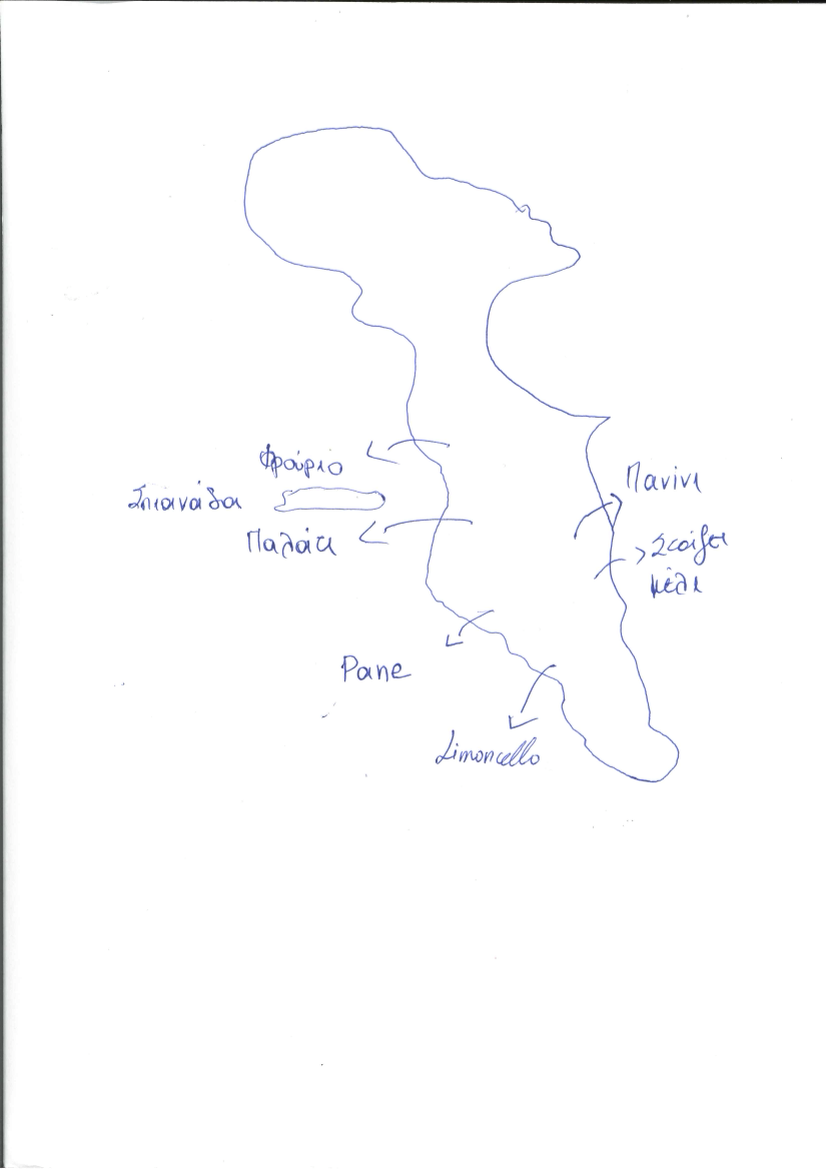 Φρούριο
Σπιανάδα
Παλάτι
Πανίνι
Στάζει
μέλι
Pane
Limoncello